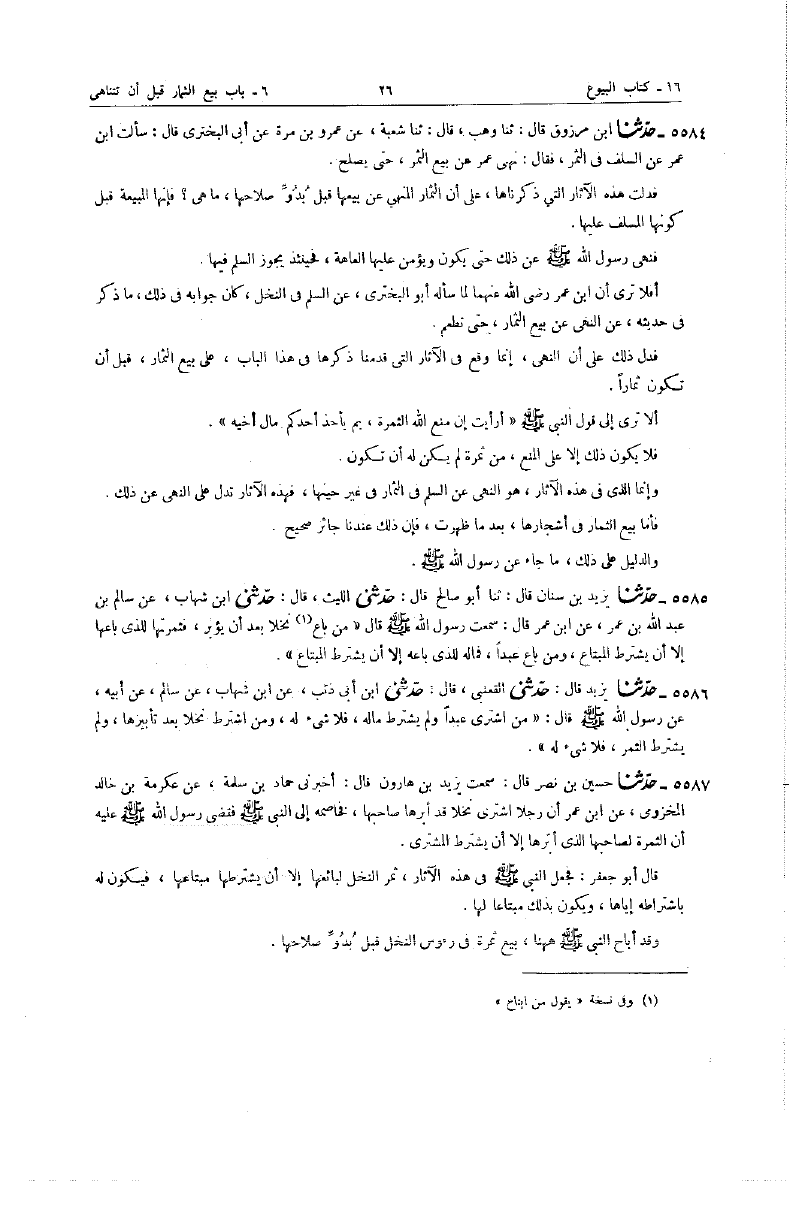 ١٦ - كتاب البيوع ٢٦ ٦ - باب بيع الثمار قبل أن تتناهى
٥٥٨٤ - حدثنا ابن مرزوق قال : ثنا وهب ، قال : ثنا شعبة ، عن عمرو بن مرة عن أبى البخترى قال : سألت ابن
عمر عن السلف فى الثمر ، فقال : نهى عمر عن بيع الثمر ، حتى يصلح .
فدلت هذه الآثار التي ذكرناها ، على أن الثمار المنهي عن بيعها قبل بُدُوِّ صلاحها ، ما هى ؟ فإنها المبيعة قبل
كونها المسلف عليها .
فنهى رسول الله ﷺ عن ذلك حتى يكون ويؤمن عليها العاهة ، فحينئذ يجوز السلم فيها .
أفلا ترى أن ابن عمر رضى الله عنهما لما سأله أبو البخترى ، عن السلم فى النخل ، كان جوابه فى ذلك ، ما ذكر
فى حديثه ، عن النهى عن بيع الثمار ، حتى تطعم .
فدل ذلك على أن النهى ، إنما وقع فى الآثار التى قدمنا ذكرها فى هذا الباب ، على بيع الثمار ، قبل أن
تكون ثماراً .
ألا ترى إلى قول النبي ﷺ « أرأيت إن منع الله الثمرة ، بم يأخذ أحدكم مال أخيه » .
فلا يكون ذلك إلا على المنع ، من ثمرة لم يكن له أن تكون .
وإنما الذى فى هذه الآثار ، هو النهى عن السلم فى الثمار فى غير حينها ، فهذه الآثار تدل على النهى عن ذلك .
فأما بيع الثمار فى أشجارها ، بعد ما ظهرت ، فإن ذلك عندنا جائز صحيح .
والدليل على ذلك ، ما جاء عن رسول الله ﷺ .
٥٥٨٥ - حدثنا يزيد بن سنان قال : ثنا أبو صالح قال : حدثنى الليث ، قال : حدثنى ابن شهاب ، عن سالم بن
عبد الله بن عمر ، عن ابن عمر قال : سمعت رسول الله ﷺ قال « من باع (١) نخلا بعد أن يؤبر ، فثمرتها للذى باعها
إلا أن يشترط المبتاع ، ومن باع عبداً ، فماله للذى باعه إلا أن يشترط المبتاع » .
٥٥٨٦ - حدثنا يزيد قال : حدثنى القعنبى ، قال : حدثنى ابن أبى ذئب ، عن ابن شهاب ، عن سالم ، عن أبيه ،
عن رسول الله ﷺ قال : « من اشترى عبداً ولم يشترط ماله ، فلا شىء له ، ومن اشترط نخلا بعد تأبيرها ، ولم
يشترط الثمر ، فلا شىء له » .
٥٥٨٧ - حدثنا حسين بن نصر قال : سمعت يزيد بن هارون قال : أخبرنى حماد بن سلمة ، عن عكرمة بن خالد
المخزومى ، عن ابن عمر أن رجلا اشترى نخلا قد أبرها صاحبها ، فخاصمه إلى النبي ﷺ فقضى رسول الله ﷺ عليه
أن الثمرة لصاحبها الذى أبَّرها إلا أن يشترط المشترى .
قال أبو جعفر : فجعل النبي ﷺ فى هذه الآثار ، ثمر النخل لبائعها إلا أن يشترطها مبتاعها ، فيكون له
باشتراطه إياها ، ويكون بذلك مبتاعا لها .
وقد أباح النبي ﷺ ههنا ، بيع ثمرة فى رءوس النخل قبل بُدُوِّ صلاحها .
(١) وفى نسخة « يقول من ابتاع »